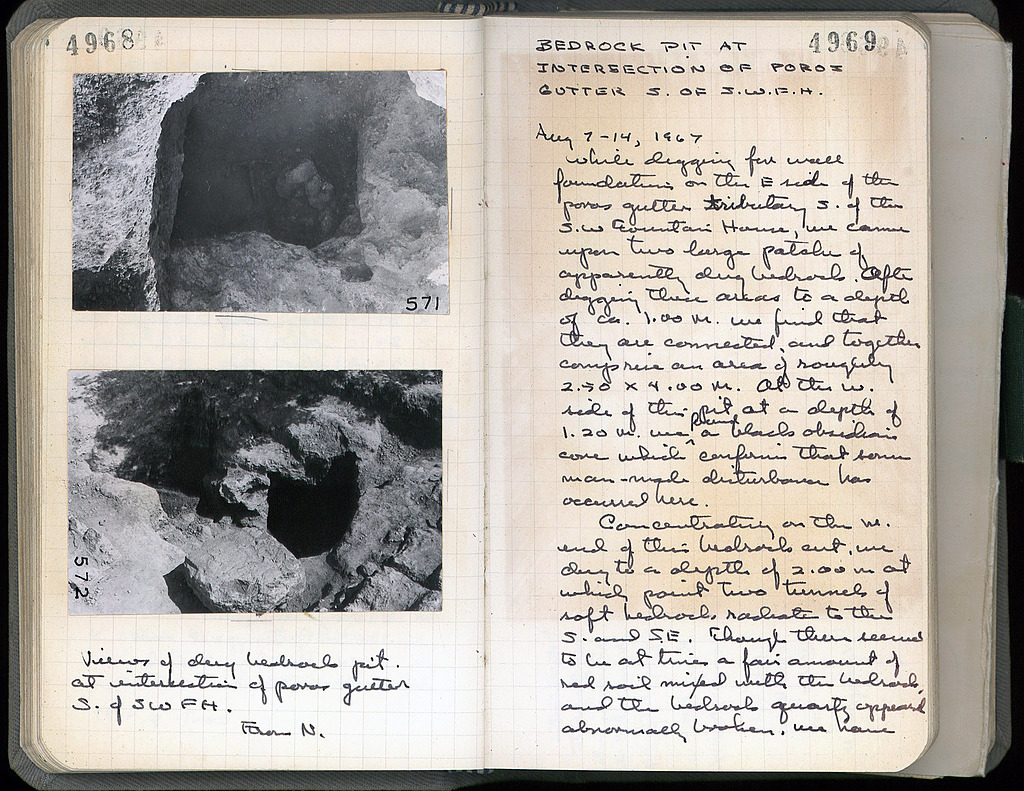 4968
571
572
Views of dug bedrock pit.
at intersection of poros gutter
S. of SWFH.
From N.
4969
BEDROCK PIT AT
INTERSECTION OF POROS
GUTTER S. OF S.W.F.H.
Aug 7-14, 1967
While digging for wall
foundations on the E side of the
poros gutter tributary S. of the
S.W Fountain House, we came
upon two large patches of
apparently dug bedrock. After
digging these areas to a depth
of ca. 1.00 m. we find that
they are connected, and together
comprise an area of roughly
2.50 x 4.00 m. At the w.
side of this pit at a depth of
1.20 m. we found a black obsidian
core which confirms that some
man-made disturbance has
occurred here.
Concentrating on the w.
end of this bedrock cut, we
dug to a depth of 2.00 m at
which point two tunnels of
soft bedrock radiate to the
S. and SE. Though there seemed
to be at times a fair amount of
red soil mixed with the bedrock,
and the bedrock quartz appeared
abnormally broken, we have